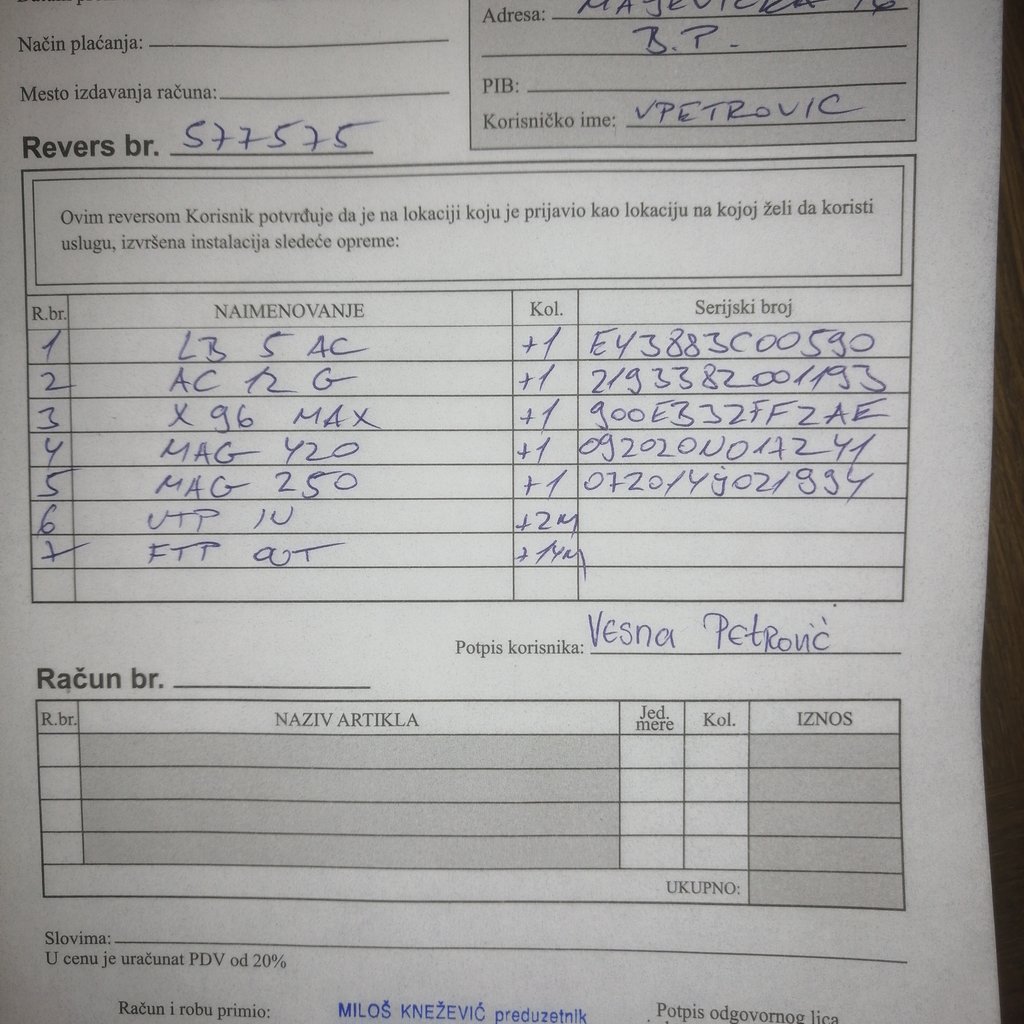 Adresa: MAJEVIČKA 16
Način plaćanja:
B.P.
PIB:
Mesto izdavanja računa:
Korisničko ime: VPETROVIC
Revers br. 577575
Ovim reversom Korisnik potvrđuje da je na lokaciji koju je prijavio kao lokaciju na kojoj želi da koristi
uslugu, izvršena instalacija sledeće opreme:
R.br. NAIMENOVANJE Kol. Serijski broj
1 LB 5 AC +1 E43883C00590
2 AC 12 G +1 2193382001193
3 X 96 MAX +1 900EB32FF2AE
4 MAG 420 +1 092020N017241
5 MAG 250 +1 072014J021994
6 UTP IN +2m
7 FTP OUT +14m
Potpis korisnika: Vesna Petrović
Račun br.
R.br. NAZIV ARTIKLA Jed. mere Kol. IZNOS
UKUPNO:
Slovima:
U cenu je uračunat PDV od 20%
Račun i robu primio: MILOŠ KNEŽEVIĆ preduzetnik Potpis odgovornog lica